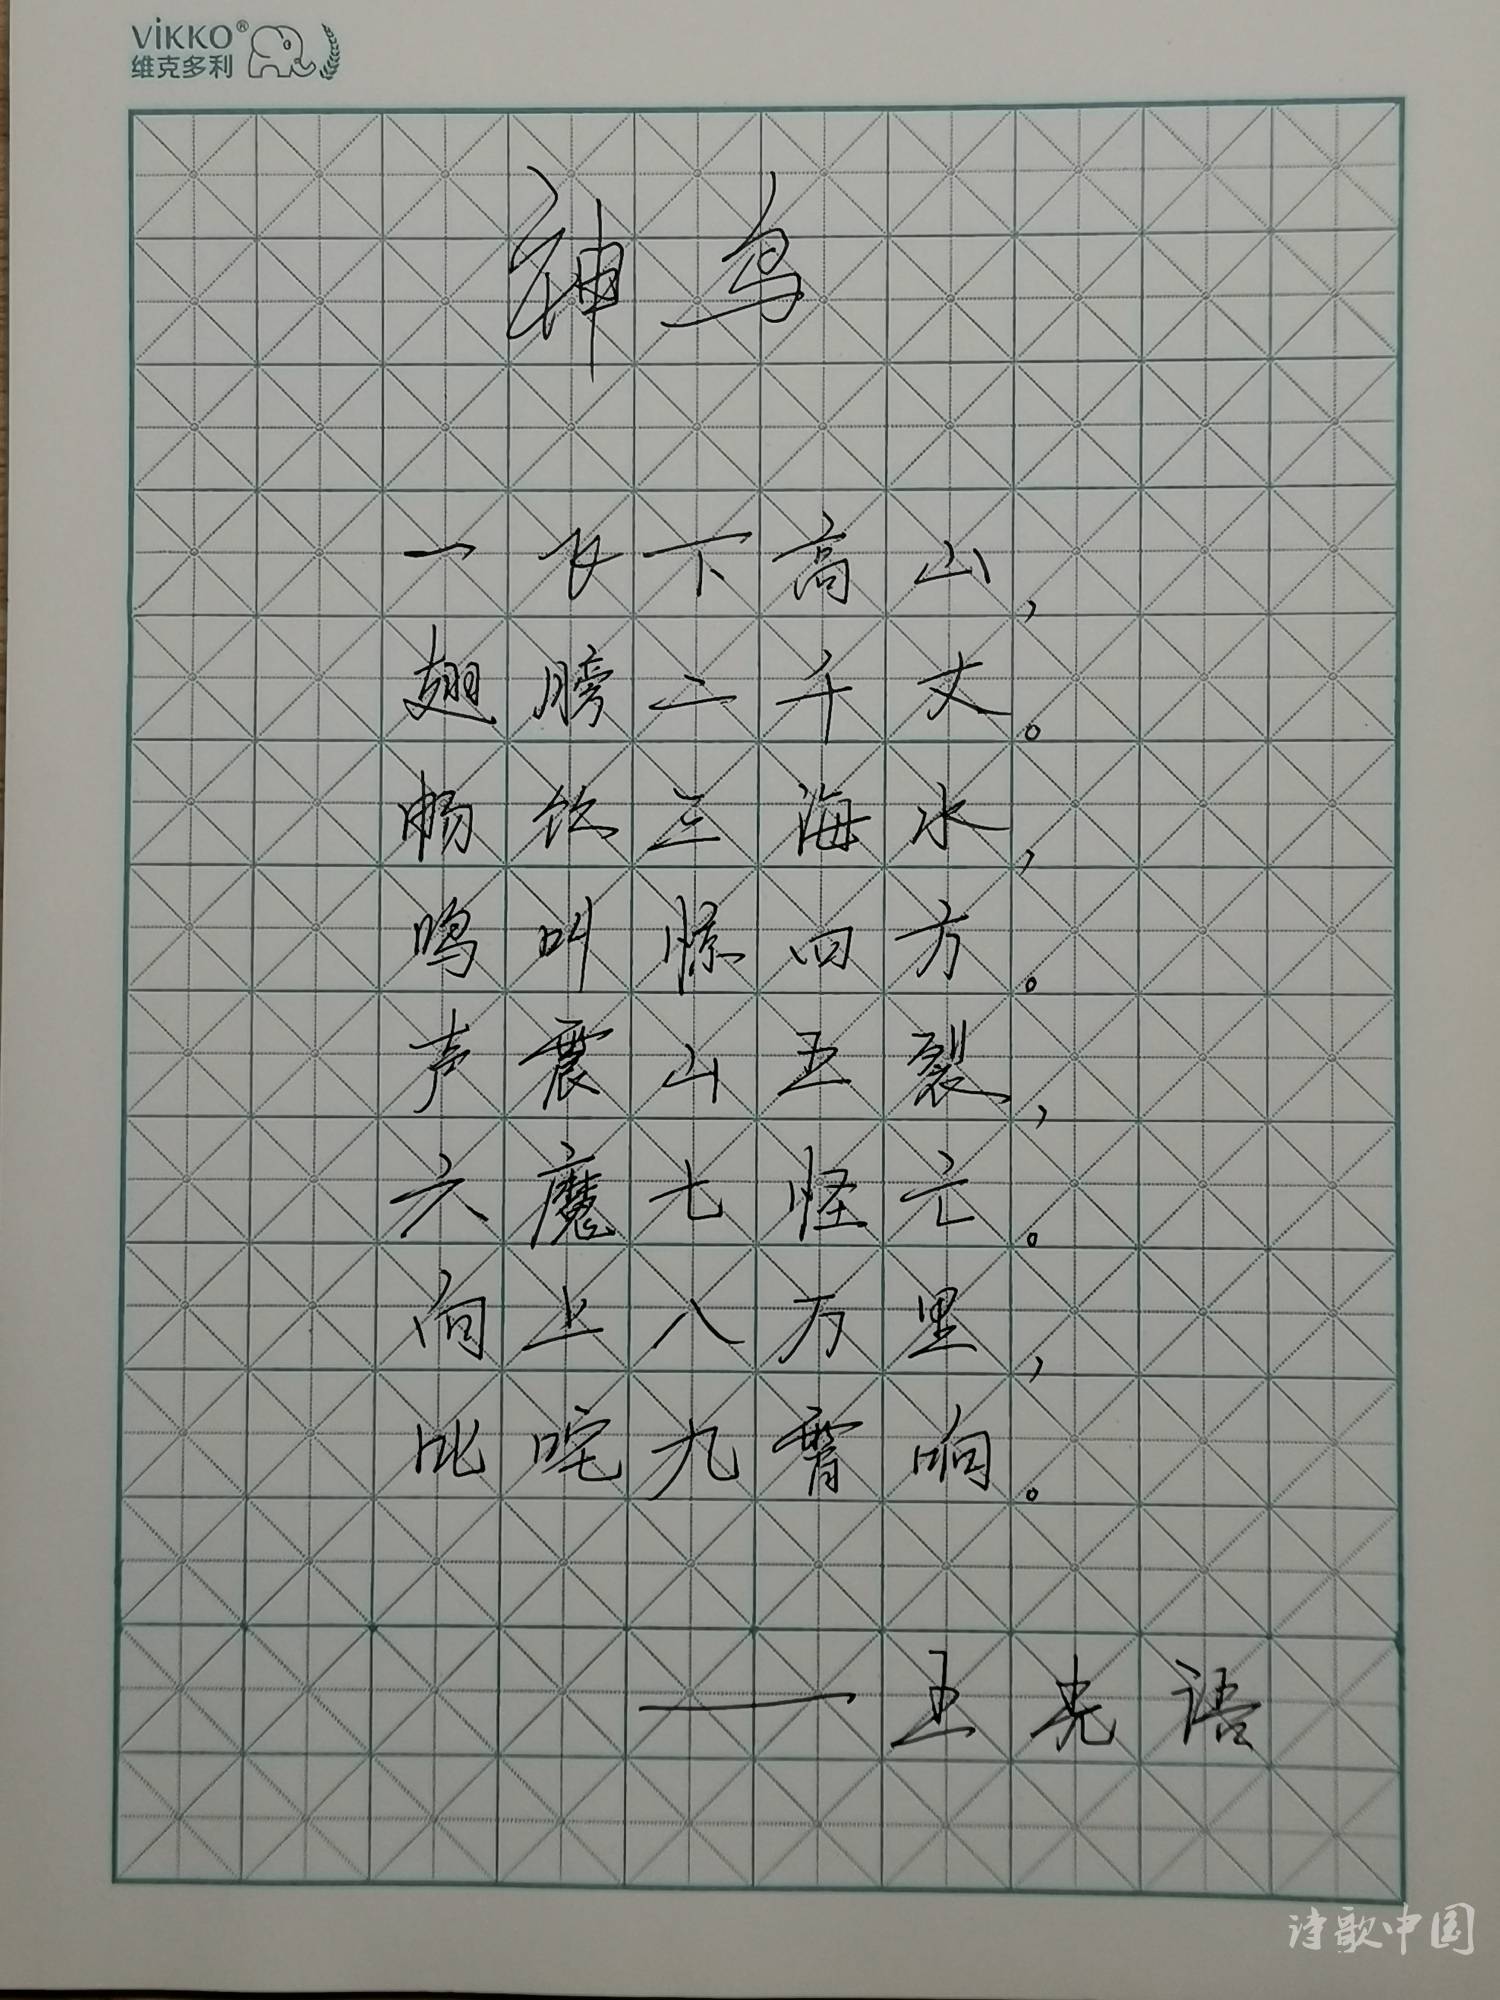 VIKKO®
维克多利
神鸟
一飞下高山，
翅膀二千丈。
畅饮三海水，
鸣叫惊四方。
声震山五裂，
六魔七怪亡。
向上八万里，
叱咤九霄响。
——王光语
诗歌中国